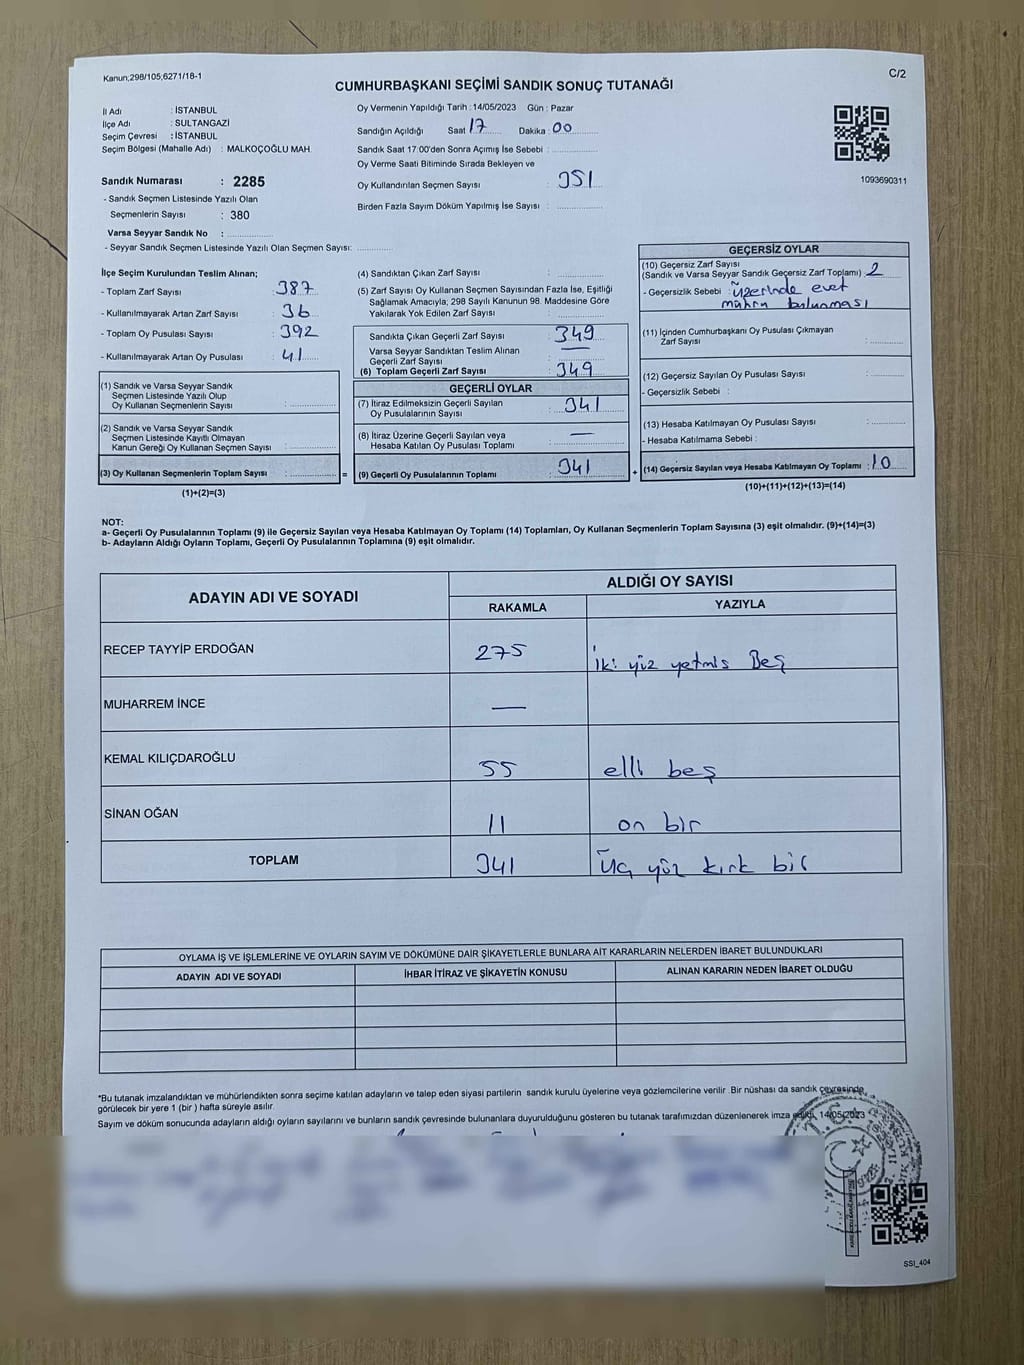 Kanun;298/105,6271/18-1
C/2
CUMHURBAŞKANI SEÇİMİ SANDIK SONUÇ TUTANAĞI
İl Adı : İSTANBUL
İlçe Adı : SULTANGAZİ
Seçim Çevresi : İSTANBUL
Seçim Bölgesi (Mahalle Adı) : MALKOÇOĞLU MAH.
Sandık Numarası : 2285
- Sandık Seçmen Listesinde Yazılı Olan
Seçmenlerin Sayısı : 380
Varsa Seyyar Sandık No :
- Seyyar Sandık Seçmen Listesinde Yazılı Olan Seçmen Sayısı:
Oy Vermenin Yapıldığı Tarih : 14/05/2023 Gün : Pazar
Sandığın Açıldığı Saat 17 Dakika : 00
Sandık Saat 17:00'den Sonra Açımış İse Sebebi :
Oy Verme Saati Bitiminde Sırada Bekleyen ve
Oy Kullandırılan Seçmen Sayısı : 351
Birden Fazla Sayım Döküm Yapılmış İse Sayısı :
1093690311
İlçe Seçim Kurulundan Teslim Alınan;
- Toplam Zarf Sayısı : 387
- Kullanılmayarak Artan Zarf Sayısı : 36
- Toplam Oy Pusulası Sayısı : 392
- Kullanılmayarak Artan Oy Pusulası : 41
(1) Sandık ve Varsa Seyyar Sandık
Seçmen Listesinde Yazılı Olup
Oy Kullanan Seçmenlerin Sayısı :
(2) Sandık ve Varsa Seyyar Sandık
Seçmen Listesinde Kayıtlı Olmayan
Kanun Gereği Oy Kullanan Seçmen Sayısı :
(3) Oy Kullanan Seçmenlerin Toplam Sayısı : =
(1)+(2)=(3)
(4) Sandıktan Çıkan Zarf Sayısı :
(5) Zarf Sayısı Oy Kullanan Seçmen Sayısından Fazla İse, Eşitliği
Sağlamak Amacıyla; 298 Sayılı Kanunun 98. Maddesine Göre
Yakılarak Yok Edilen Zarf Sayısı :
Sandıkta Çıkan Geçerli Zarf Sayısı : 349
Varsa Seyyar Sandıktan Teslim Alınan
Geçerli Zarf Sayısı : —
(6) Toplam Geçerli Zarf Sayısı : 349
GEÇERLİ OYLAR
(7) İtiraz Edilmeksizin Geçerli Sayılan
Oy Pusulalarının Sayısı : 341
(8) İtiraz Üzerine Geçerli Sayılan veya
Hesaba Katılan Oy Pusulası Toplamı : —
(9) Geçerli Oy Pusulalarının Toplamı : 341 +
GEÇERSİZ OYLAR
(10) Geçersiz Zarf Sayısı
(Sandık ve Varsa Seyyar Sandık Geçersiz Zarf Toplamı) : 2
- Geçersizlik Sebebi : üzerinde evet
mührü bulunması
(11) İçinden Cumhurbaşkanı Oy Pusulası Çıkmayan
Zarf Sayısı :
(12) Geçersiz Sayılan Oy Pusulası Sayısı :
- Geçersizlik Sebebi :
(13) Hesaba Katılmayan Oy Pusulası Sayısı :
- Hesaba Katılmama Sebebi :
(14) Geçersiz Sayılan veya Hesaba Katılmayan Oy Toplamı : 10
(10)+(11)+(12)+(13)=(14)
NOT:
a- Geçerli Oy Pusulalarının Toplamı (9) ile Geçersiz Sayılan veya Hesaba Katılmayan Oy Toplamı (14) Toplamları, Oy Kullanan Seçmenlerin Toplam Sayısına (3) eşit olmalıdır. (9)+(14)=(3)
b- Adayların Aldığı Oyların Toplamı, Geçerli Oy Pusulalarının Toplamına (9) eşit olmalıdır.
ADAYIN ADI VE SOYADI
ALDIĞI OY SAYISI
RAKAMLA YAZIYLA
RECEP TAYYİP ERDOĞAN 275 iki yüz yetmis Beş
MUHARREM İNCE —
KEMAL KILIÇDAROĞLU 55 elli beş
SİNAN OĞAN 11 on bir
TOPLAM 341 üç yüz kırk bir
OYLAMA İŞ VE İŞLEMLERİNE VE OYLARIN SAYIM VE DÖKÜMÜNE DAİR ŞİKAYETLERLE BUNLARA AİT KARARLARIN NELERDEN İBARET BULUNDUKLARI
ADAYIN ADI VE SOYADI İHBAR İTİRAZ VE ŞİKAYETİN KONUSU ALINAN KARARIN NEDEN İBARET OLDUĞU
*Bu tutanak imzalandıktan ve mühürlendikten sonra seçime katılan adayların ve talep eden siyasi partilerin sandık kurulu üyelerine veya gözlemcilerine verilir. Bir nüshası da sandık çevresinde
görülecek bir yere 1 (bir ) hafta süreyle asılır.
Sayım ve döküm sonucunda adayların aldığı oyların sayılarını ve bunların sandık çevresinde bulunanlara duyurulduğunu gösteren bu tutanak tarafımızdan düzenlenerek imza edildi. 14/05/2023
T.C.
SSI_404